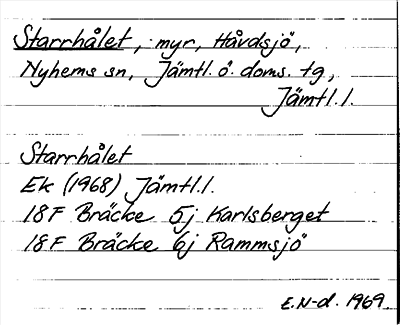 Starrhålet, myr, Håvdsjö,
Nyhems sn, Jämtl. ö. doms. tg,
Jämtl. l.
Starrhålet
Ek (1968) Jämtl. l.
18F Bräcke 5j Karlsberget
18F Bräcke 6j Rammsjö
E.N-d. 1969